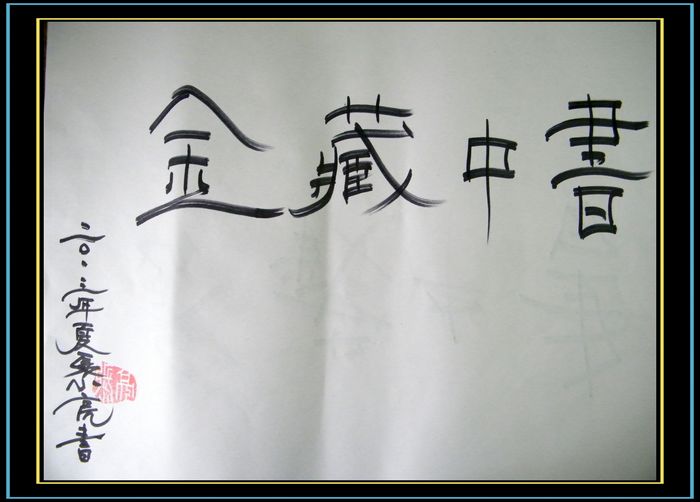 書中藏金
二〇一三年夏 亮書